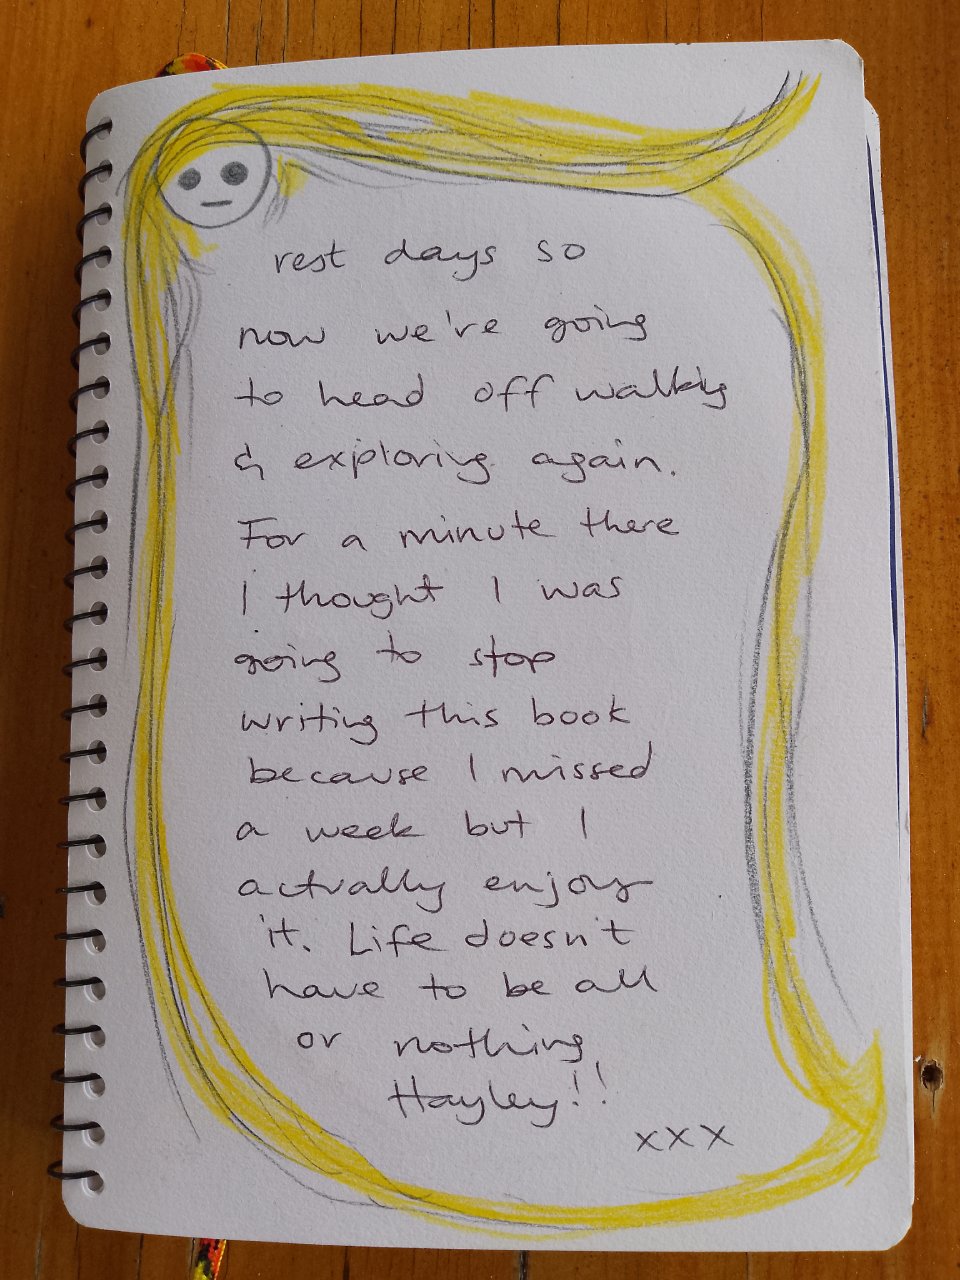 rest days so
now we're going
to head off walking
& exploring again.
For a minute there
I thought I was
going to stop
writing this book
because I missed
a week but I
actually enjoy
it. Life doesn't
have to be all
or nothing
Hayley!!
xxx